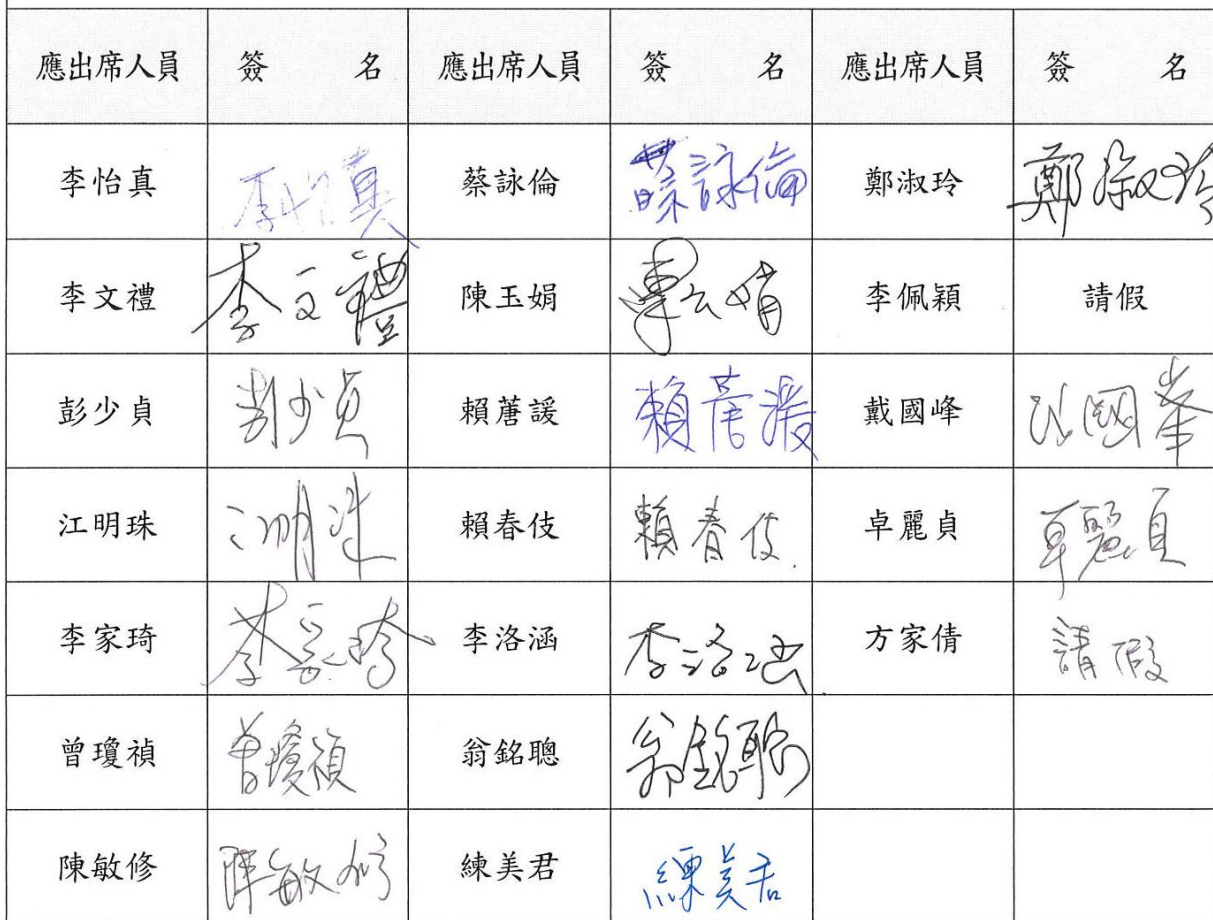 應出席人員 簽名 應出席人員 簽名 應出席人員 簽名
李怡真 李怡真 蔡詠倫 蔡詠倫 鄭淑玲 鄭淑玲
李文禮 李文禮 陳玉娟 李佩穎 請假
彭少貞 彭少貞 賴蓎諼 賴蓎諼 戴國峰 國峯
江明珠 江明珠 賴春伎 賴春伎 卓麗貞 卓麗貞
李家琦 李家琦 李洛涵 李洛涵 方家倩 請假
曾瓊禎 曾瓊禎 翁銘聰 翁銘聰
陳敏修 陳敏修 練美君 練美君